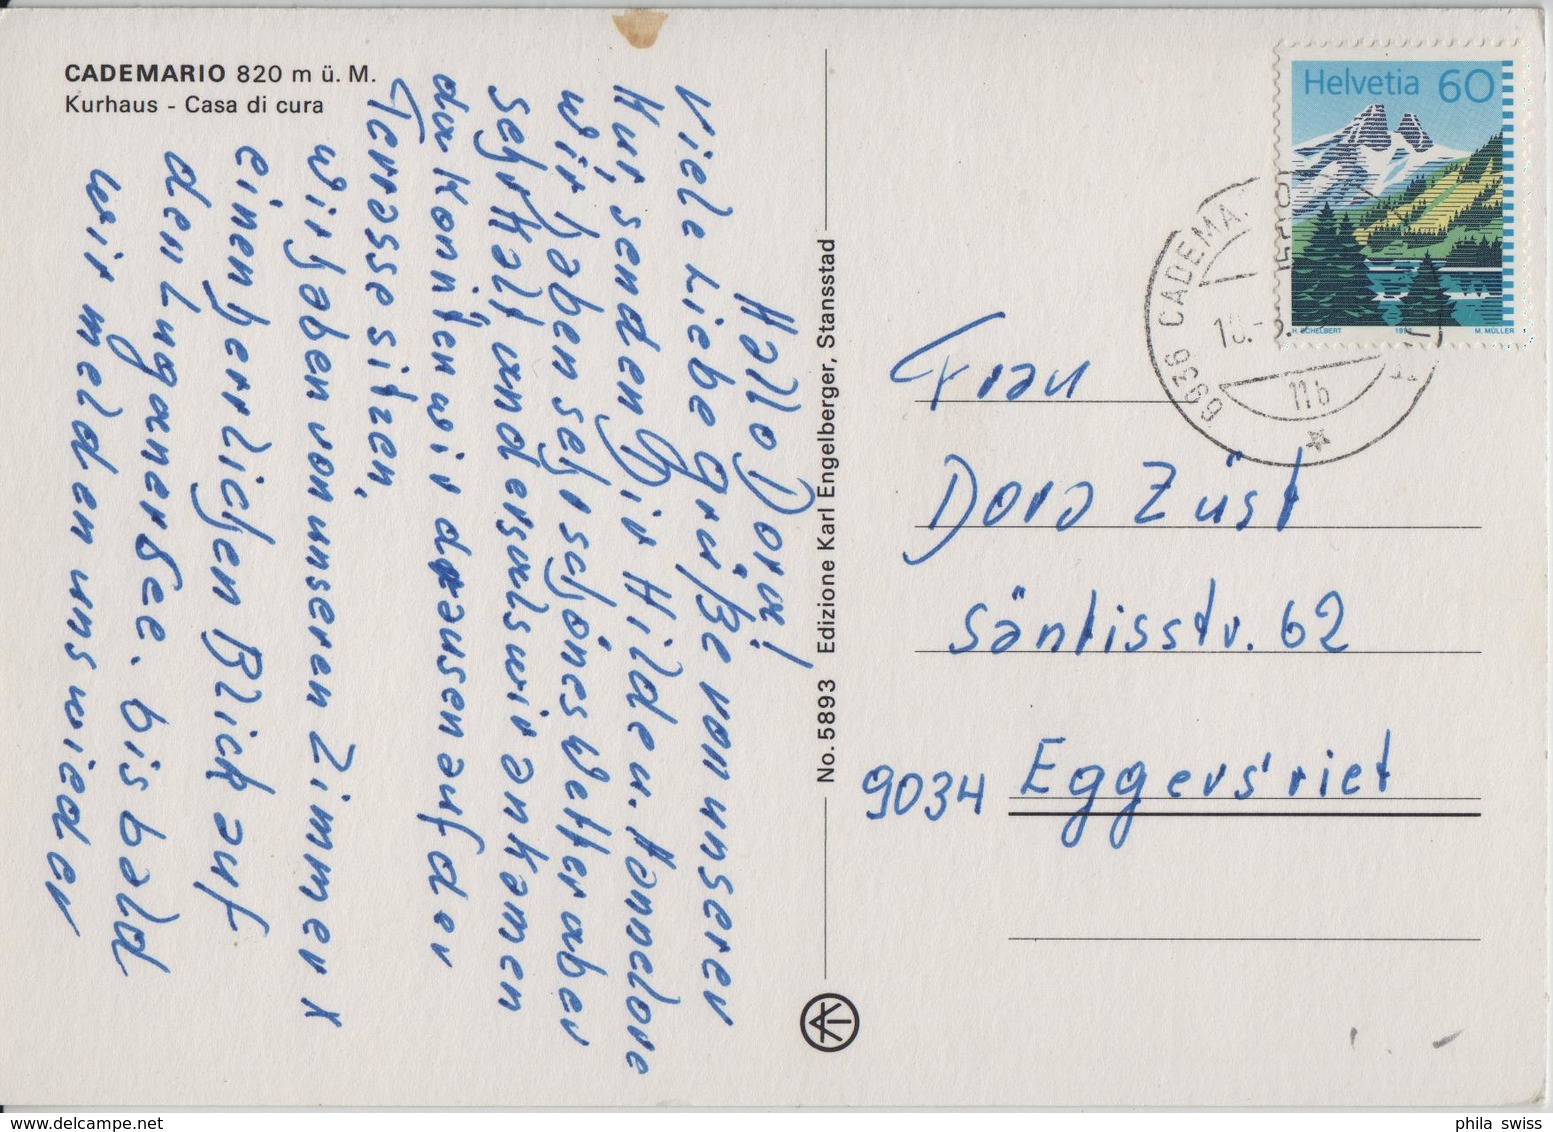 CADEMARIO 820 m ü. M.
Kurhaus - Casa di cura
Hallo Dora!
viele Liebe grüße von unserer
Kur, senden Dir Hilde u. Hannelore
wir haben sehr schönes Wetter aber
sehr kalt und ersals wir ankamen
da konnten wir draussen auf der
Terrasse sitzen,
wir haben von unseren Zimmer
einen herrlichen Blick auf
den Luganersee. bis bald
wir melden uns wieder
No. 5893 Edizione Karl Engelberger, Stansstad
Helvetia 60
H. SCHELBERT M. MÜLLER
6936 CADEMA
18.-
11b
Frau
Dora Züst
Säntisstr. 62
9034 Eggers'riet
phila swiss